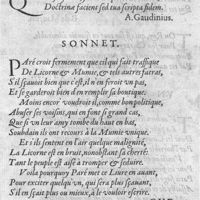 Doctrina faciens sed tua scripta fidem.
A. Gaudinius.
SONNET.
Paré croit fermement que cil qui fait traffique
De Licorne & Mumie, & tels autres fatras,
S'il sçavoit bien que c'est, il n'en seroit un pas,
Et se garderoit bien d'en remplir sa boutique:
Moins encor voudroit il, comme bon politique,
Abuser ses voisins, qui en font grand cas,
Que si'ls veut leur amy tombe du haut en bas,
Soudain ils ont recours à la Mumie unique.
Et s'ils sentent en l'air quelque malignité,
La Licorne est en bruit, nonobstant sa cherté:
Tant le peuple est aisé à tromper & seduire.
Voila pourquoy Paré met ce Livre en avant,
Pour exciter quelqu'un, qui sera plus sçauant,
S'il en sçait plus ou mieux, à le vouloir escrire.